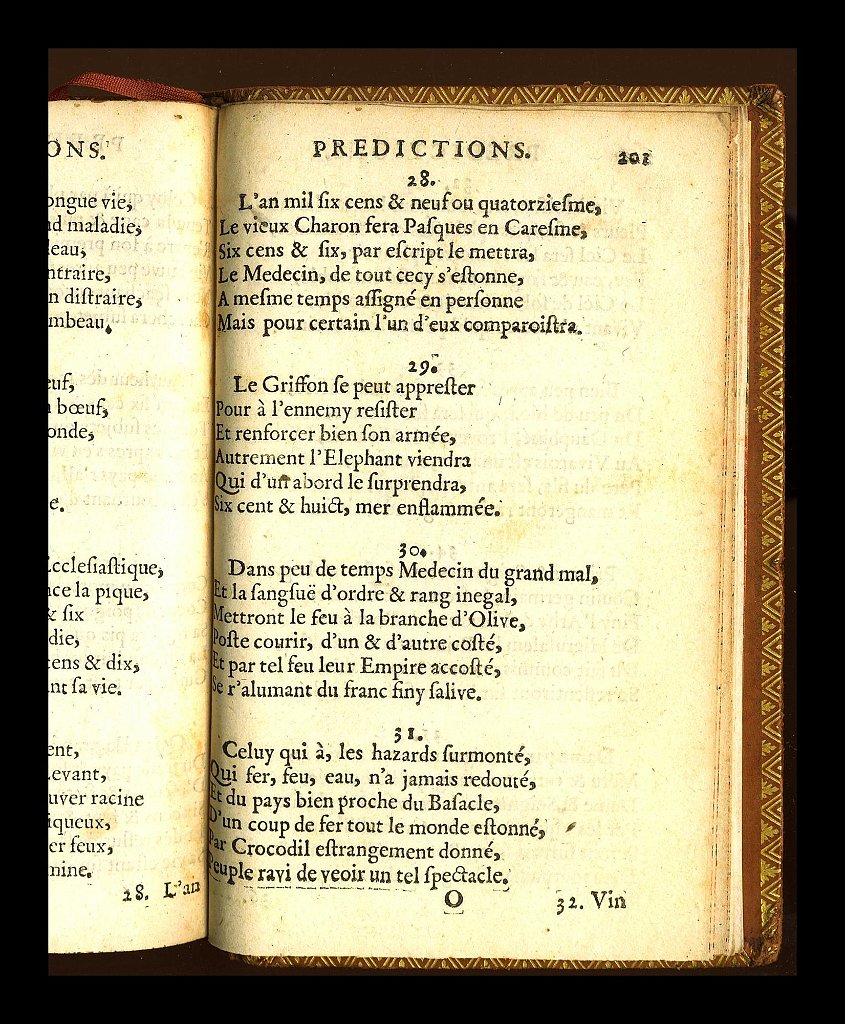 ONS.
ongue vie,
d maladie,
eau,
ntraire,
n diſtraire,
mbeau.
euf,
bœuf,
onde,
e.
ccleſiaſtique,
ce la pique,
& ſix
die,
cens & dix,
nt ſa vie.
ent,
evant,
uver racine
iqueux,
er feux,
mine.
28. L'an
PREDICTIONS. 201
28.
L'an mil ſix cens & neuf ou quatorzieſme,
Le vieux Charon fera Paſques en Careſme,
Six cens & ſix, par eſcript le mettra,
Le Medecin, de tout cecy s'eſtonne,
A meſme temps aſſigné en perſonne
Mais pour certain l'un d'eux comparoiſtra.
29.
Le Griffon ſe peut appreſter
Pour à l'ennemy reſiſter
Et renforcer bien ſon armée,
Autrement l'Elephant viendra
Qui d'un abord le ſurprendra,
Six cent & huict, mer enflammée.
30.
Dans peu de temps Medecin du grand mal,
Et la ſangſuë d'ordre & rang inegal,
Mettront le feu à la branche d'Olive,
Poſte courir, d'un & d'autre coſté,
Et par tel feu leur Empire accoſté,
Se r'alumant du franc finy ſalive.
31.
Celuy qui à, les hazards ſurmonté,
Qui fer, feu, eau, n'a jamais redouté,
Et du pays bien proche du Baſacle,
D'un coup de fer tout le monde eſtonné,
Par Crocodil eſtrangement donné,
Peuple ravi de veoir un tel ſpectacle.
O 32. Vin